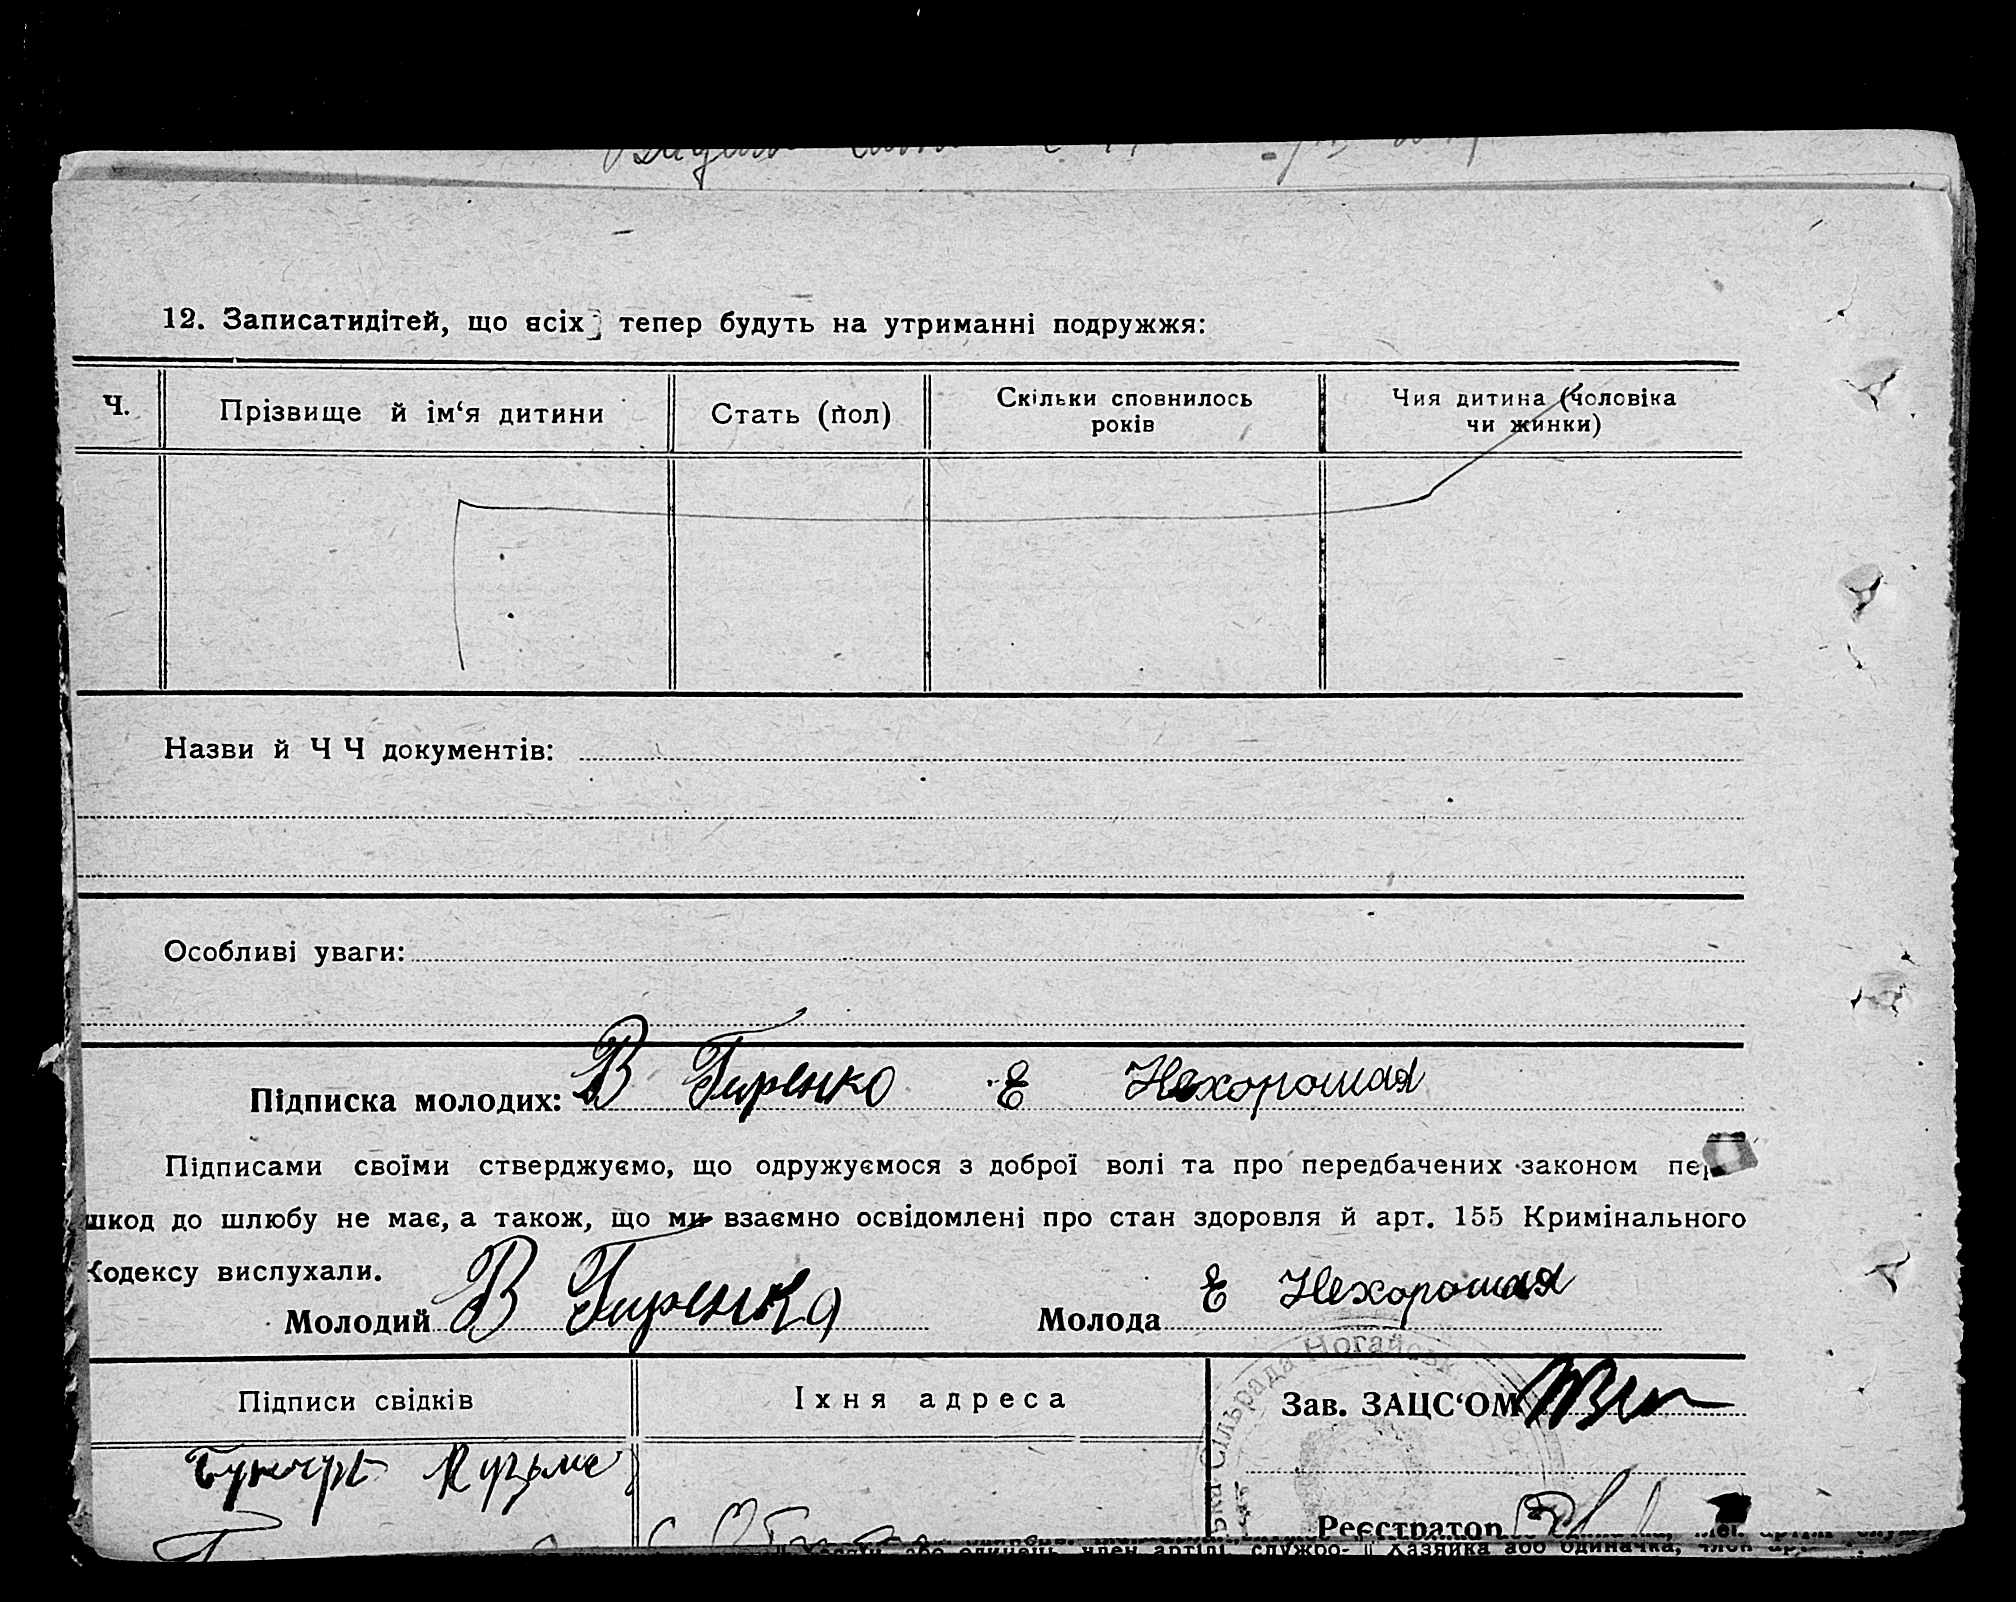 12. Записатидітей, що всіх тепер будуть на утриманні подружжя:
Ч.
Прізвище й ім‘я дитини
Стать (пол)
Скільки сповнилось
років
Чия дитина (чоловіка
чи жинки)
Назви й Ч Ч документів:
Особливі уваги:
Підписка молодих: В Гиренко Е Нехорошая
Підписами своїми стверджуємо, що одружуємося з доброї волі та про передбачених законом пер
шкод до шлюбу не має, а також, що ми взаємно освідомлені про стан здоровля й арт. 155 Кримінального
Кодексу вислухали.
Молодий В Гиренко Молода Е Нехорошая
Підписи свідків
Їхня адреса
Зав. ЗАЦС‘ОМ
Кузьма
Реєстратор
Сільрада Ногайськ